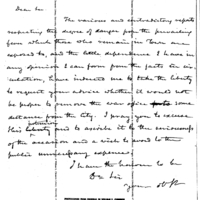 Dear Sir
The various and contradictory reports
respecting the degree of danger from the prevailing
fever which those who remain in town are
exposed to, and the little dependence I have in
any opinion I can form from the facts in cir-
culation, have induced me to take the liberty
to request your advice whether it would not
be proper to remove the war office some
distance from the City. I pray you to excuse
this liberty and to ascribe it to the seriousness
of the occasion and a wish to avoid to the
public unnecessary expence.
I have the honour to be
Dr Sir
your ob st